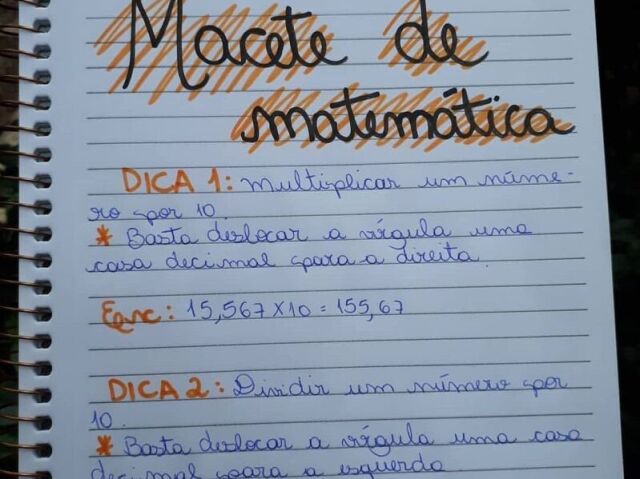 Macete de
matemática
DICA 1: Multiplicar um núme-
ro por 10.
* Basta deslocar a vírgula uma
casa decimal para a direita.
Exc: 15,567 X 10 = 155,67
DICA 2: Dividir um número por
10.
* Basta deslocar a vírgula uma casa
decimal para a esquerda